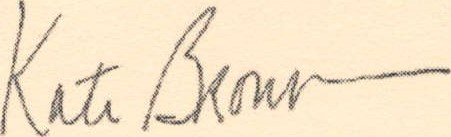 Kate Brown